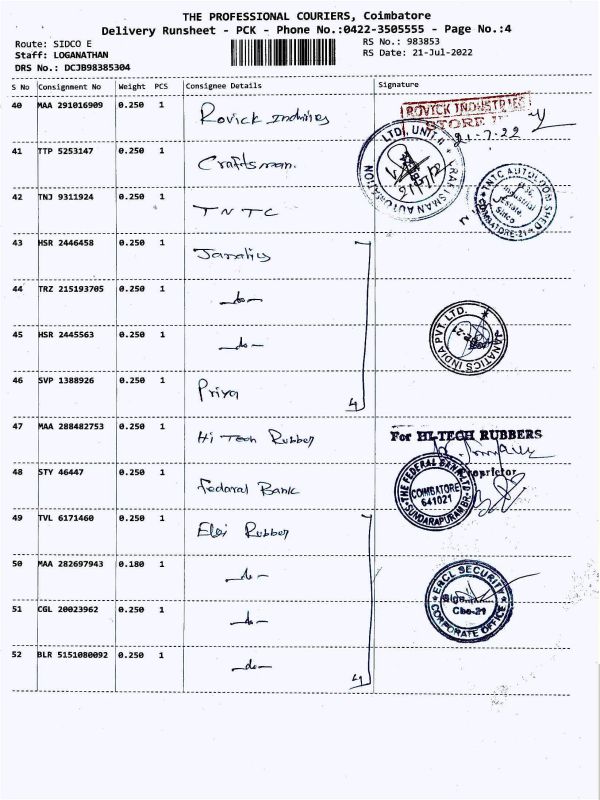 THE PROFESSIONAL COURIERS, Coimbatore
Delivery Runsheet - PCK - Phone No.:0422-3505555 - Page No.:4
Route: SIDCO E RS No.: 983853
Staff: LOGANATHAN RS Date: 21-Jul-2022
DRS No.: DCJB98385304
S No Consignment No Weight PCS Consignee Details Signature
40 MAA 291016909 0.250 1 Rovick Industries
ROVICK INDUSTRIES
STORE
21-7-22
41 TTP 5253147 0.250 1 Craftsman.
LTD, UNIT II * CRAFTSMAN AUTOMATION
42 TNJ 9311924 0.250 1 TNTC
TNTC AUTOLOOM SHED
Industrial
Estate
Sidco
COIMBATORE-21
43 HSR 2446458 0.250 1 Janatics
44 TRZ 215193705 0.250 1 -do-
45 HSR 2445563 0.250 1 -do-
JANATICS INDIA PVT. LTD.
46 SVP 1388926 0.250 1 Priya
4
47 MAA 288482753 0.250 1 Hi Tech Rubber
For HI-TECH RUBBERS
Proprietor
48 STY 46447 0.250 1 Federal Bank
THE FEDERAL BANK LTD
COIMBATORE
641021
SUNDARAPURAM BR.
49 TVL 6171460 0.250 1 Elgi Rubber
50 MAA 282697943 0.180 1 -do-
ERCL SECURITY
Sign
Cbe-21
CORPORATE OFFICE
51 CGL 20023962 0.250 1 -do-
52 BLR 5151080092 0.250 1 -do-
4